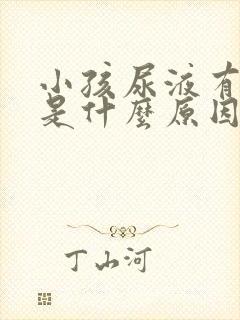 小孩尿液有
是什麼原因
丁山河